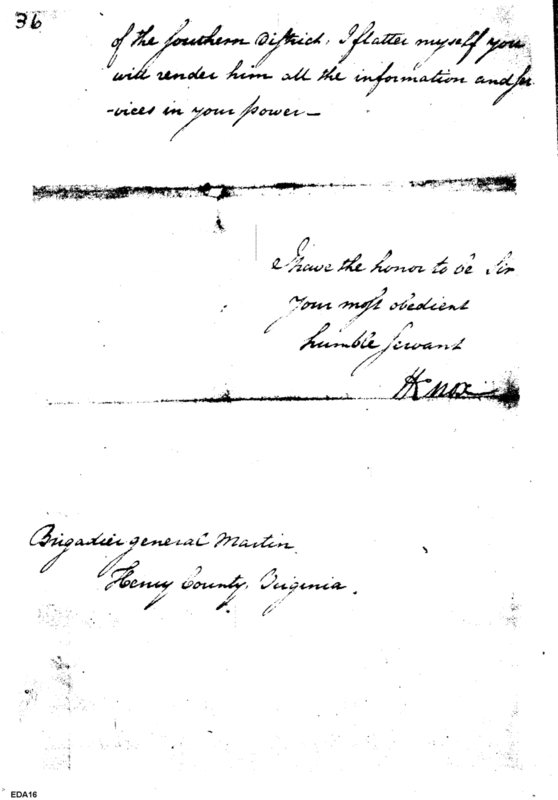 36
of the Southern District, I flatter myself you
will render him all the information and ser
-vices in your power—
I have the honor to be Sir
your most obedient
humble servant
HKnox
Brigadier general Martin
Henry County, Virginia.
EDA16